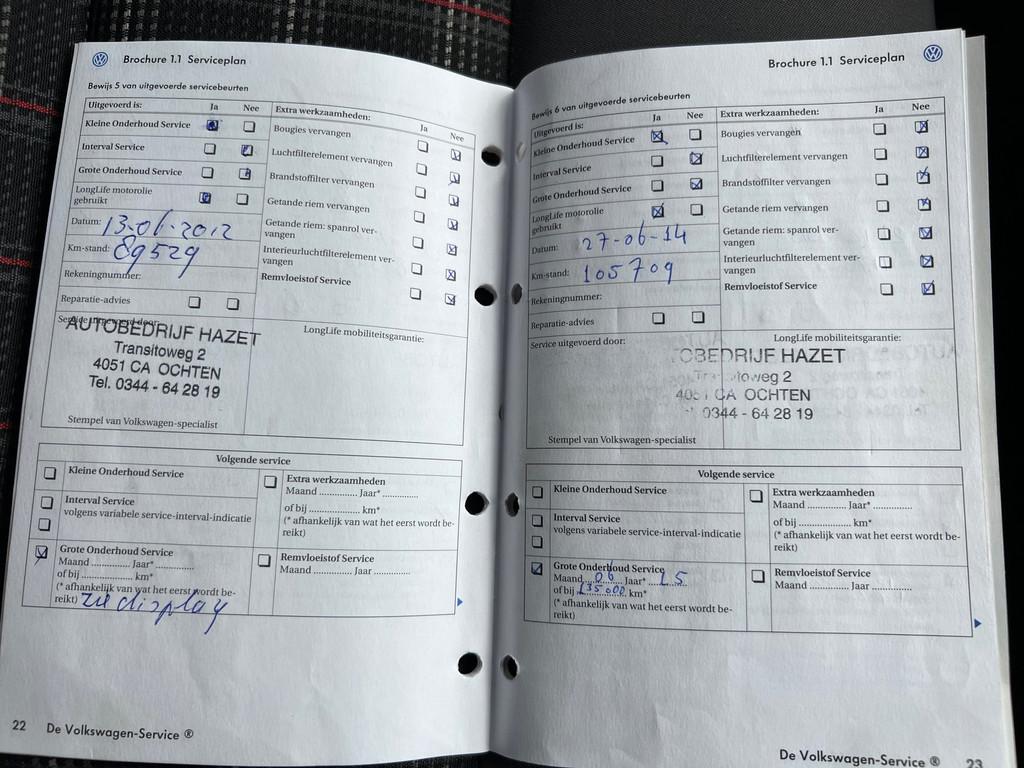 Brochure 1.1 Serviceplan
Bewijs 5 van uitgevoerde servicebeurten
Uitgevoerd is: Ja Nee
Kleine Onderhoud Service
Interval Service
Grote Onderhoud Service
LongLife motorolie
gebruikt
Datum: 13-06-2012
Km-stand: 89529
Rekeningnummer:
Reparatie-advies
Extra werkzaamheden: Ja Nee
Bougies vervangen
Luchtfilterelement vervangen
Brandstoffilter vervangen
Getande riem vervangen
Getande riem: spanrol ver-
vangen
Interieurluchtfilterelement ver-
vangen
Remvloeistof Service
Service uitgevoerd door:
AUTOBEDRIJF HAZET
Transitoweg 2
4051 CA OCHTEN
Tel. 0344 - 64 28 19
Stempel van Volkswagen-specialist
LongLife mobiliteitsgarantie:
Volgende service
Kleine Onderhoud Service
Interval Service
volgens variabele service-interval-indicatie
Grote Onderhoud Service
Maand .............. Jaar* ..............
of bij ...................... km*
(* afhankelijk van wat het eerst wordt be-
reikt) zie display
Extra werkzaamheden
Maand .............. Jaar* ..............
of bij ...................... km*
(* afhankelijk van wat het eerst wordt be-
reikt)
Remvloeistof Service
Maand .............. Jaar ..............
22 De Volkswagen-Service ®
Brochure 1.1 Serviceplan
Bewijs 6 van uitgevoerde servicebeurten
Uitgevoerd is: Ja Nee
Kleine Onderhoud Service
Interval Service
Grote Onderhoud Service
LongLife motorolie
gebruikt
Datum: 27-06-14
Km-stand: 105709
Rekeningnummer:
Reparatie-advies
Extra werkzaamheden: Ja Nee
Bougies vervangen
Luchtfilterelement vervangen
Brandstoffilter vervangen
Getande riem vervangen
Getande riem: spanrol ver-
vangen
Interieurluchtfilterelement ver-
vangen
Remvloeistof Service
Service uitgevoerd door:
LongLife mobiliteitsgarantie:
OBEDRIJF HAZET
weg 2
CA OCHTEN
0344 - 64 28 19
Stempel van Volkswagen-specialist
Volgende service
Kleine Onderhoud Service
Interval Service
volgens variabele service-interval-indicatie
Grote Onderhoud Service
Maand 06 Jaar* 15
of bij 135000 km*
(* afhankelijk van wat het eerst wordt be-
reikt)
Extra werkzaamheden
Maand .............. Jaar* ..............
of bij ...................... km*
(* afhankelijk van wat het eerst wordt be-
reikt)
Remvloeistof Service
Maand .............. Jaar ..............
De Volkswagen-Service ® 23